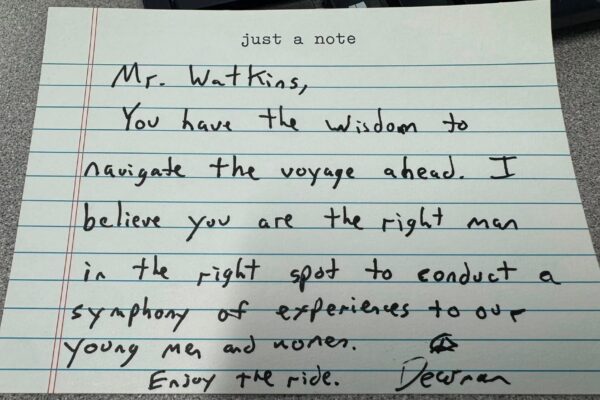 just a note
Mr. Watkins,
You have the wisdom to
navigate the voyage ahead. I
believe you are the right man
in the right spot to conduct a
symphony of experiences to our
young men and women.
Enjoy the ride.